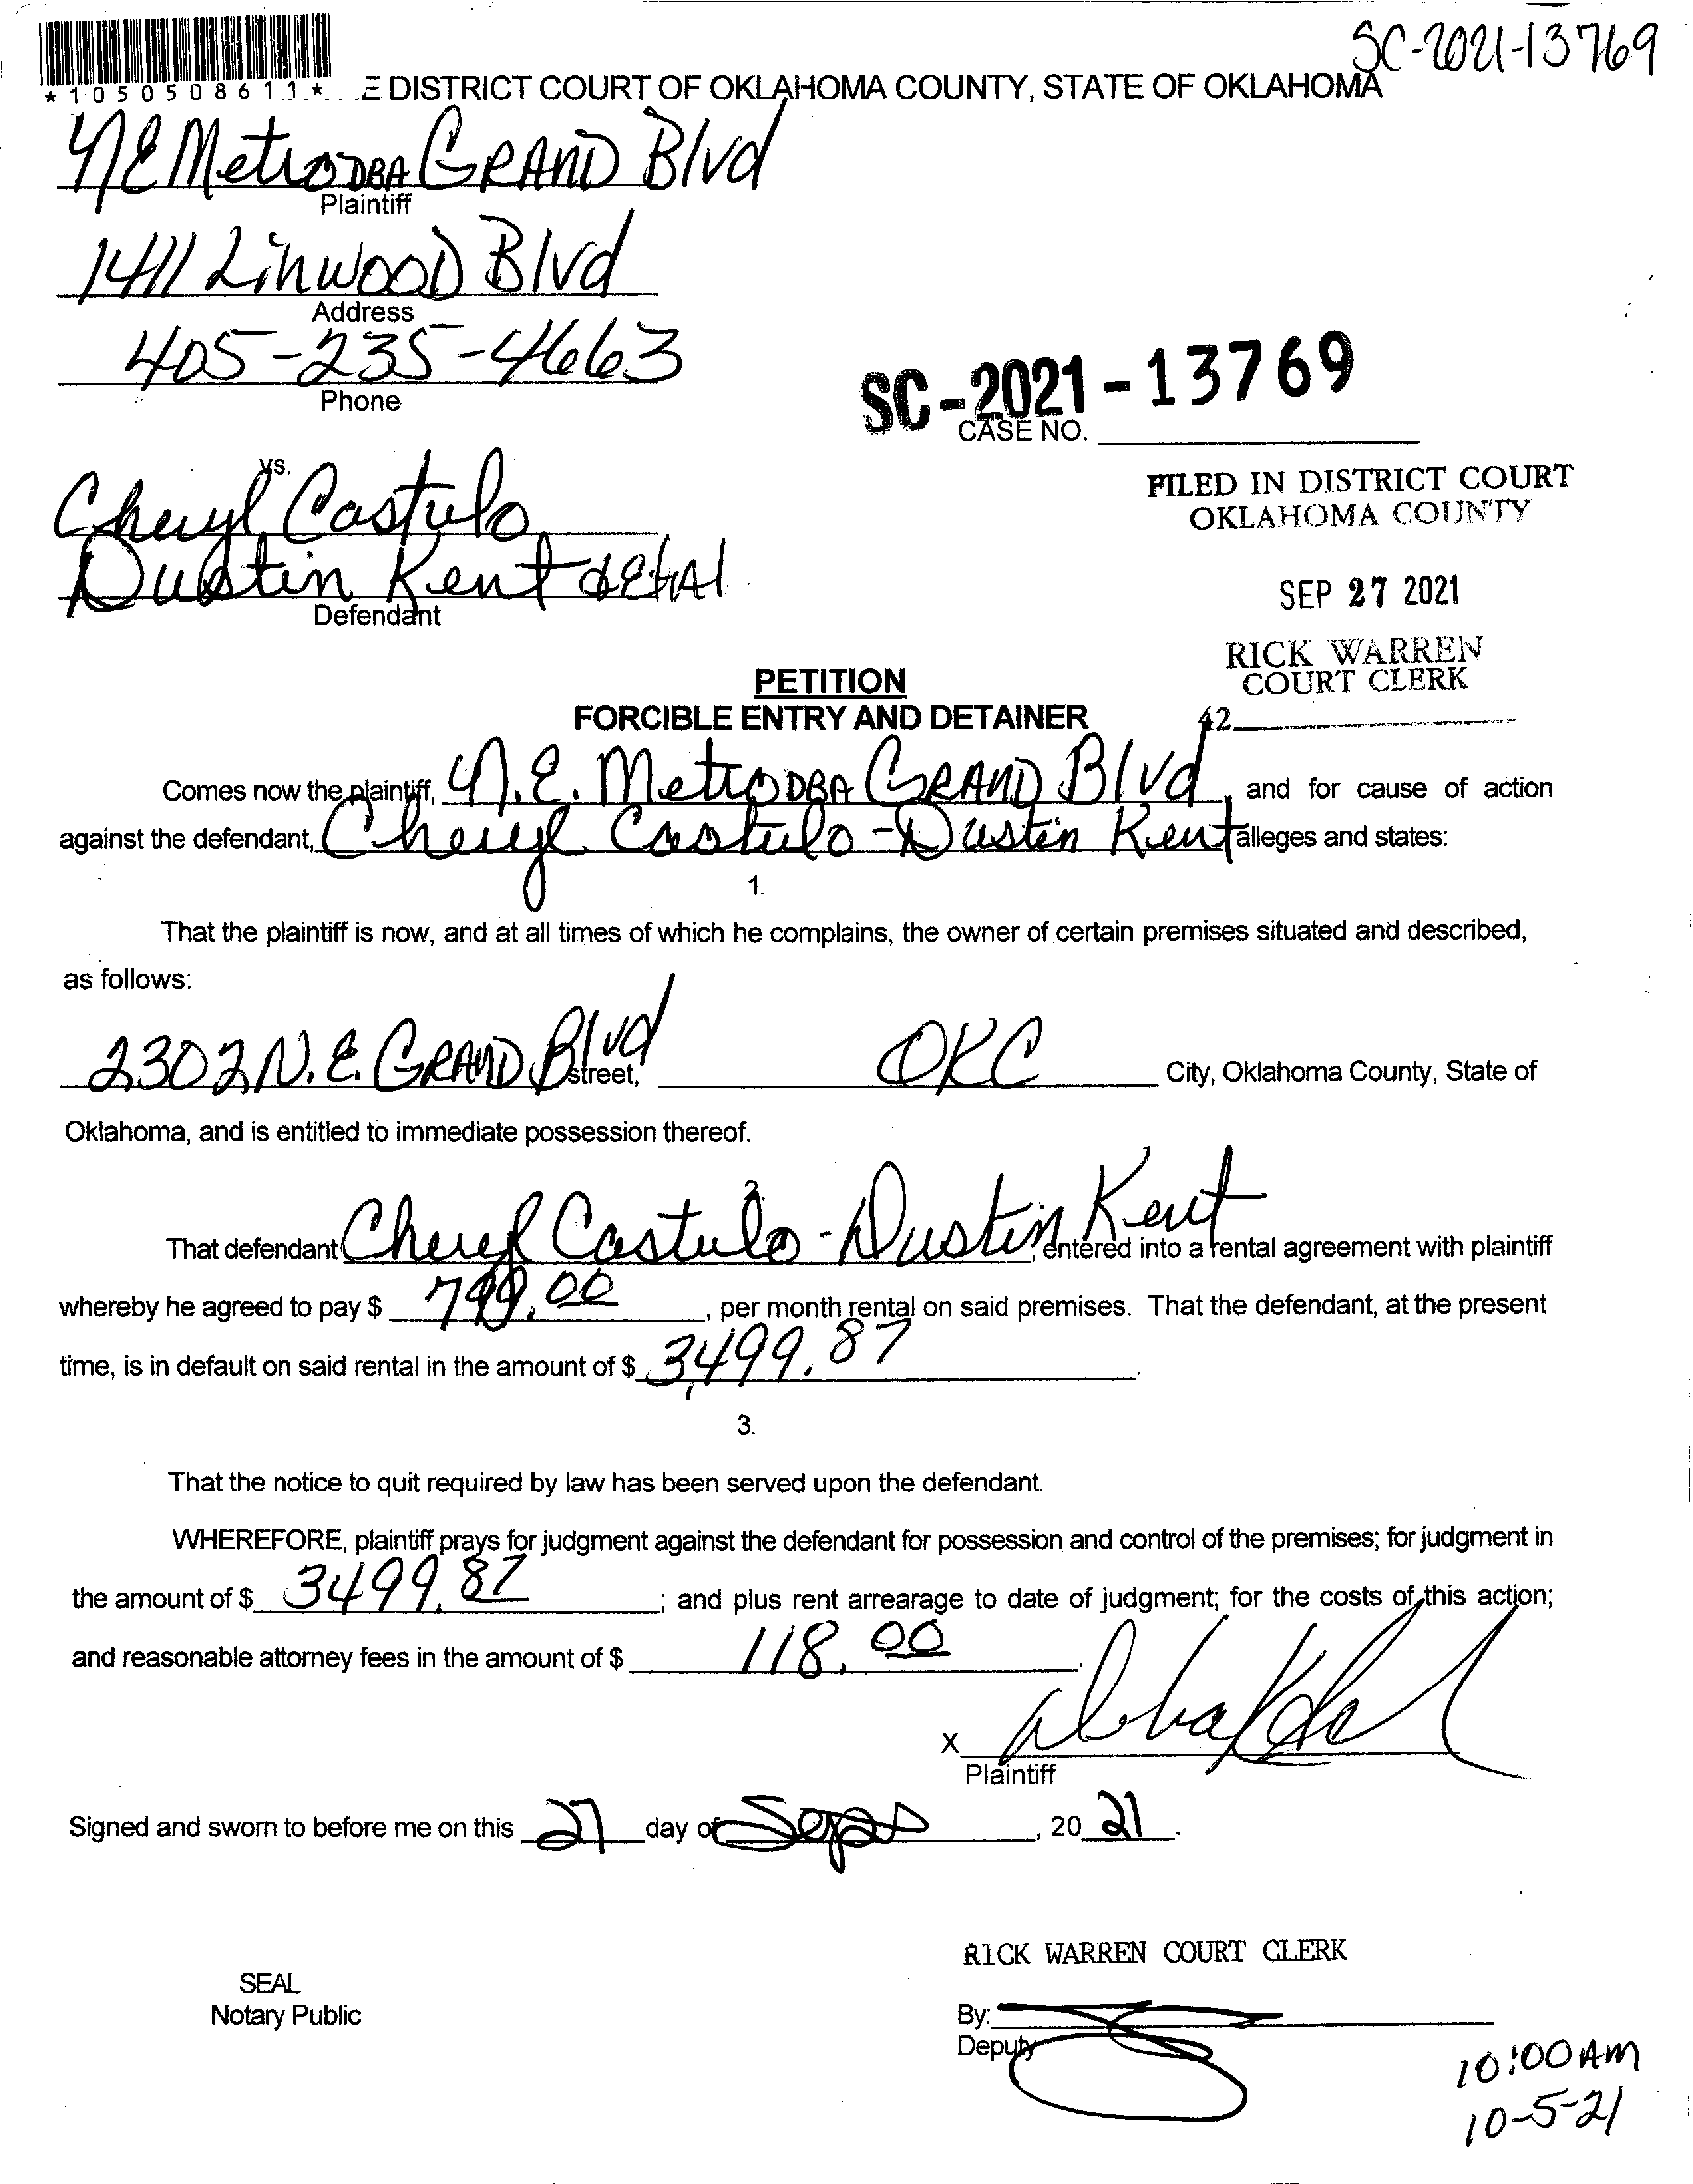 SC-2021-13769
*1050508611* E DISTRICT COURT OF OKLAHOMA COUNTY, STATE OF OKLAHOMA
NE Metro DBA GRAND Blvd
Plaintiff
1411 Linwood Blvd
Address
405-235-4663
Phone
SC-2021-13769
CASE NO.
vs.
Cheryl Castulo
Dustin Kent etal
Defendant
FILED IN DISTRICT COURT
OKLAHOMA COUNTY
SEP 27 2021
RICK WARREN
COURT CLERK
42
PETITION
FORCIBLE ENTRY AND DETAINER
Comes now the plaintiff, N.E. Metro DBA GRAND Blvd, and for cause of action
against the defendant, Cheryl Castulo-Dustin Kent alleges and states:
1.
That the plaintiff is now, and at all times of which he complains, the owner of certain premises situated and described,
as follows:
2302 N.E. GRAND Blvd Street, OKC City, Oklahoma County, State of
Oklahoma, and is entitled to immediate possession thereof.
2.
That defendant Cheryl Castulo-Dustin Kent, entered into a rental agreement with plaintiff
whereby he agreed to pay $ 799.00, per month rental on said premises. That the defendant, at the present
time, is in default on said rental in the amount of $ 3,499.87.
3.
That the notice to quit required by law has been served upon the defendant.
WHEREFORE, plaintiff prays for judgment against the defendant for possession and control of the premises; for judgment in
the amount of $ 3499.87; and plus rent arrearage to date of judgment; for the costs of this action;
and reasonable attorney fees in the amount of $ 118.00.
X
Plaintiff
Signed and sworn to before me on this 27 day of, 20 21.
RICK WARREN COURT CLERK
SEAL
Notary Public
By:
Deputy
10:00 AM
10-5-21